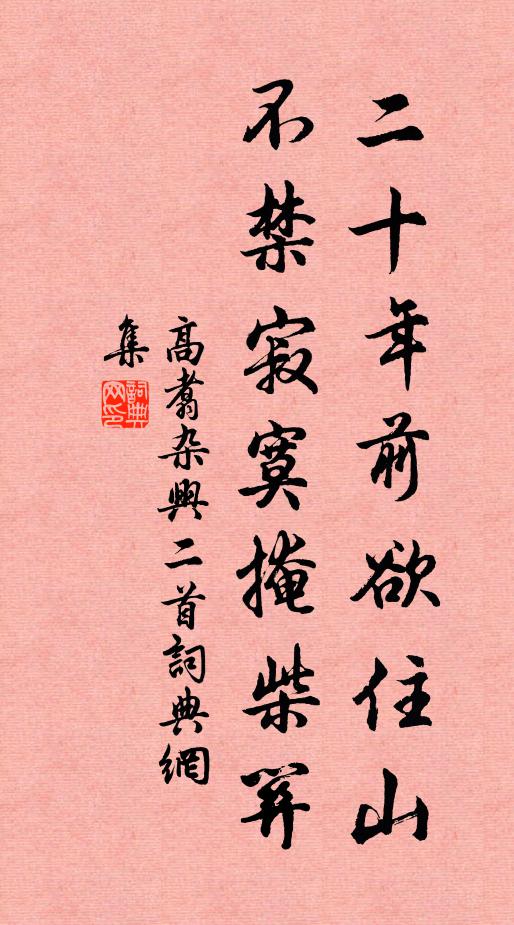 二十年前欲住山
不禁寂寞掩柴關
高翥杂興二首詞典網
集
詞典
网印